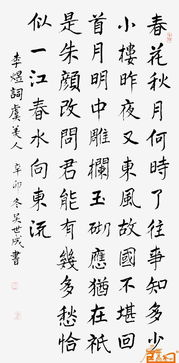 春花秋月何時了往事知多少
小樓昨夜又東風故國不堪回
首月明中雕欄玉砌應猶在祇
是朱顔改問君能有幾多愁恰
似一江春水向東流
李煜詞虞美人 辛卯冬吴世成書